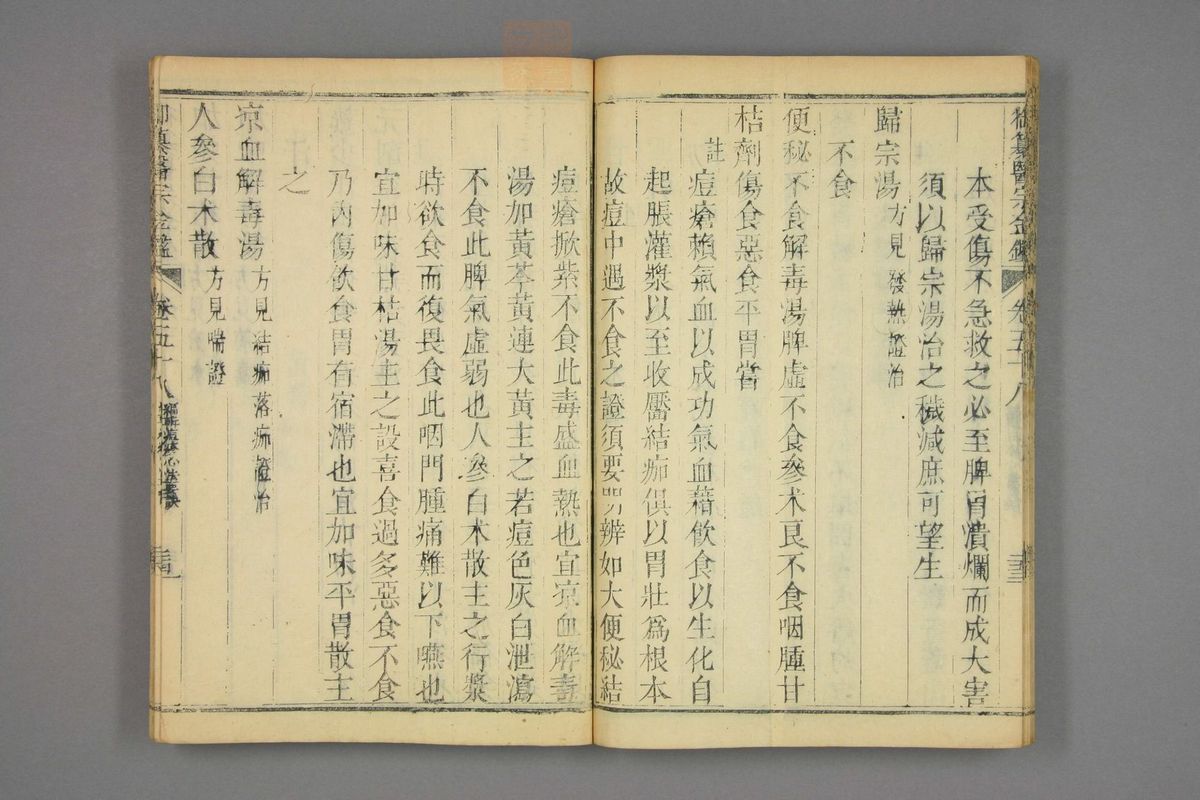 御纂醫宗金鑑
卷五十八
本受傷不急救之必至脾胃潰爛而成大害
須以歸宗湯治之穢減庶可望生
歸宗湯方見發熱證治
不食
便秘不食解毒湯脾虛不食參术良不食咽腫甘
桔劑傷食惡食平胃嘗
註
痘瘡賴氣血以成功氣血藉飲食以生化自
起脹灌漿以至收靨結痂俱以胃壯爲根本
故痘中遇不食之證須要明辨如大便秘結
痘瘡掀紫不食此毒盛血熱也宜凉血解毒
湯加黃芩黃連大黃主之若痘色灰白泄瀉
不食此脾氣虛弱也人參白术散主之行漿
時欲食而復畏食此咽門腫痛難以下嚥也
宜加味甘桔湯主之設喜食過多惡食不食
乃內傷飲食胃有宿滯也宜加味平胃散主
之
凉血解毒湯方見結痂落痂證治
人參白术散方見喘證
御纂醫宗金鑑
卷五十八